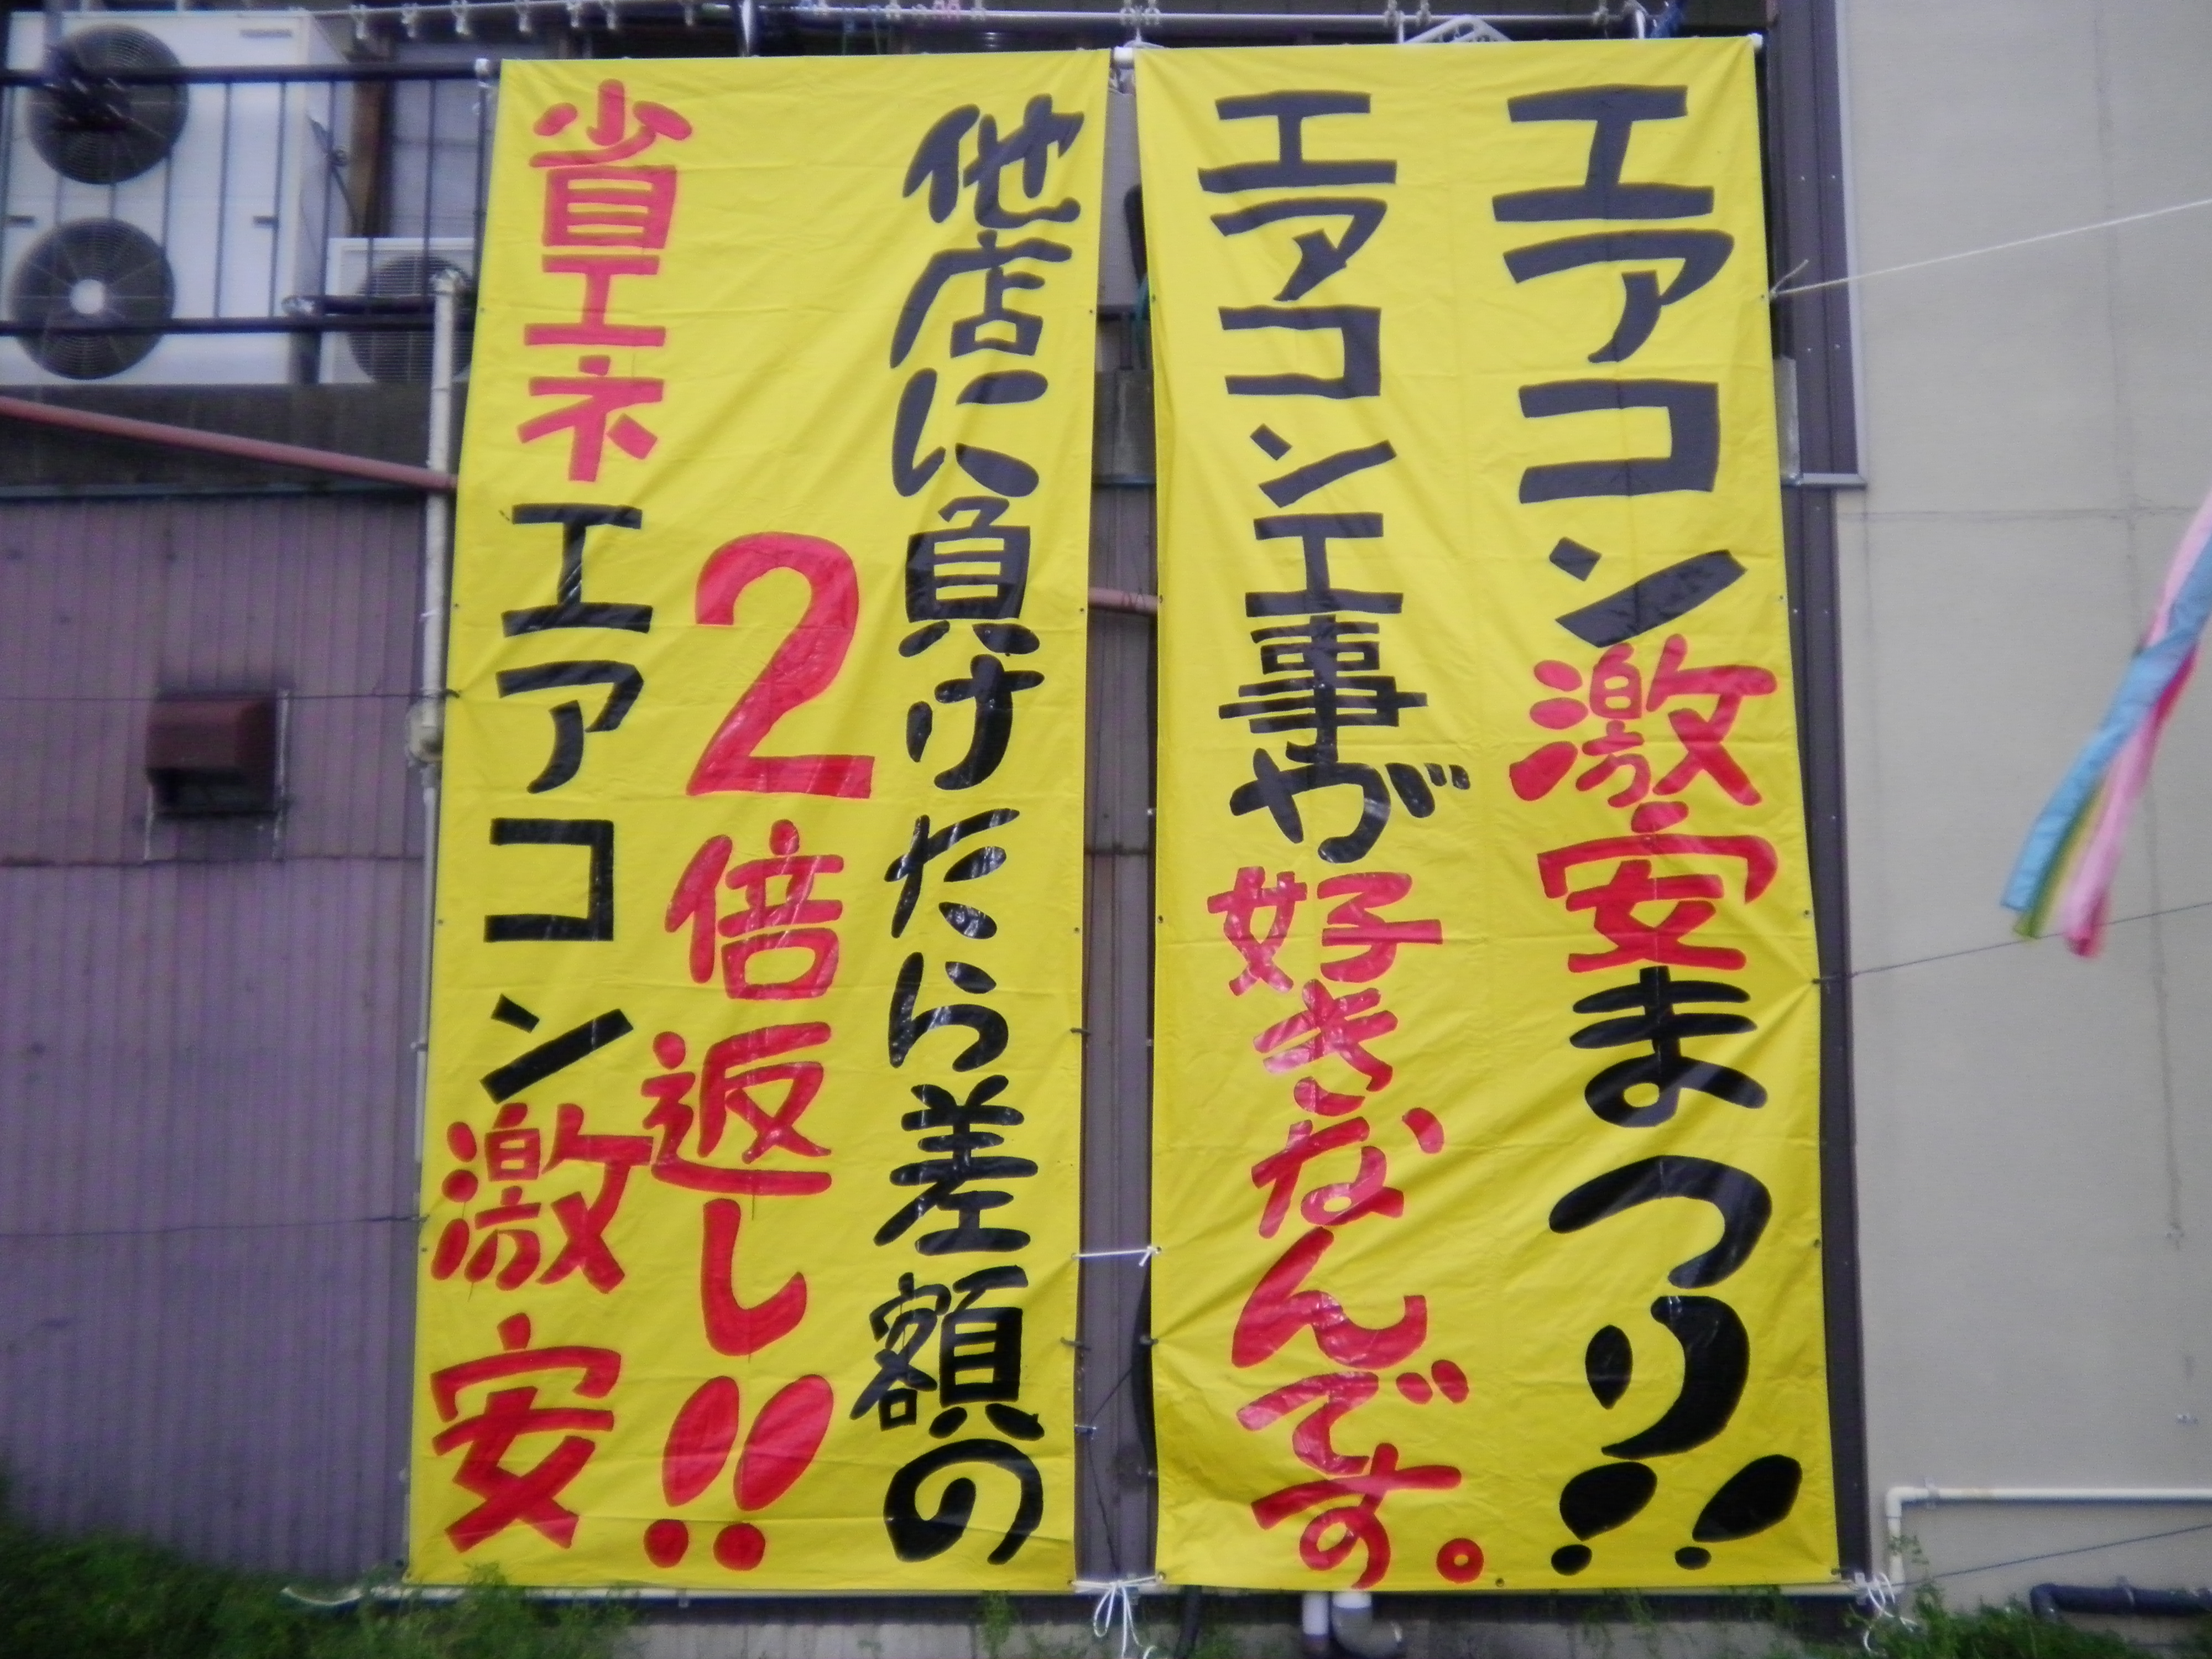 エアコン激安まつり!!
エアコン工事が好きなんです。
他店に負けたら差額の
2倍返し!!
省エネエアコン激安